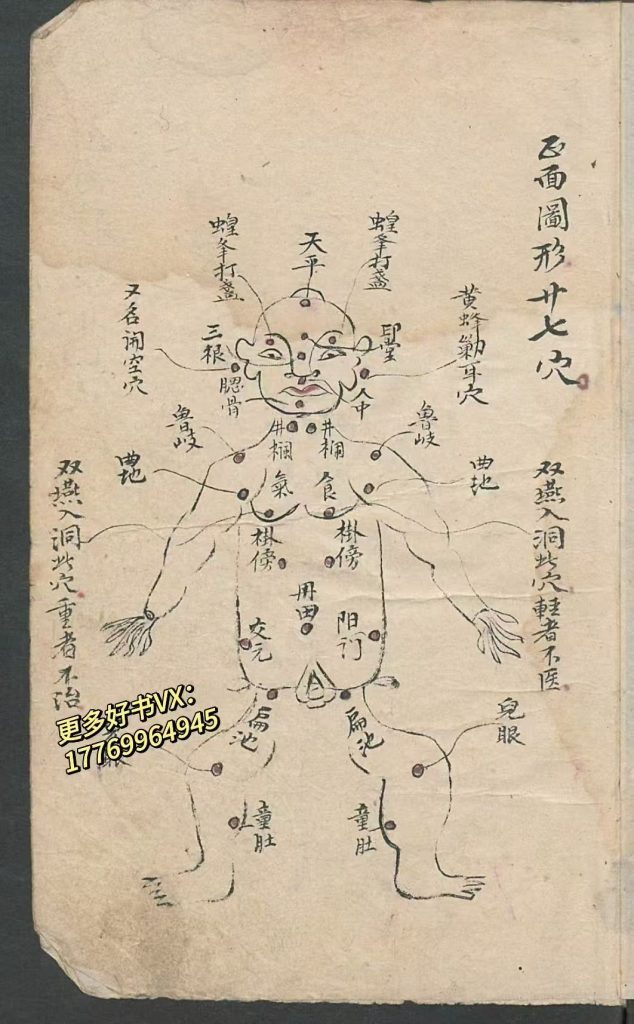 正面圖形廿七穴
黄蜂勦耳穴
蝗夆打盞
天平
蝗夆打盞
又名闭空穴
三根
腮骨
印堂
人中
魯岐
井欄
井欄
魯岐
曲池
氣
食
曲池
双燕入洞此穴輕者不医
双燕入洞此穴重者不治
掛傍
掛傍
丹田
交元
阳门
扁池
扁池
皃眼
眼
童肚
童肚
更多好书VX:
17769964945